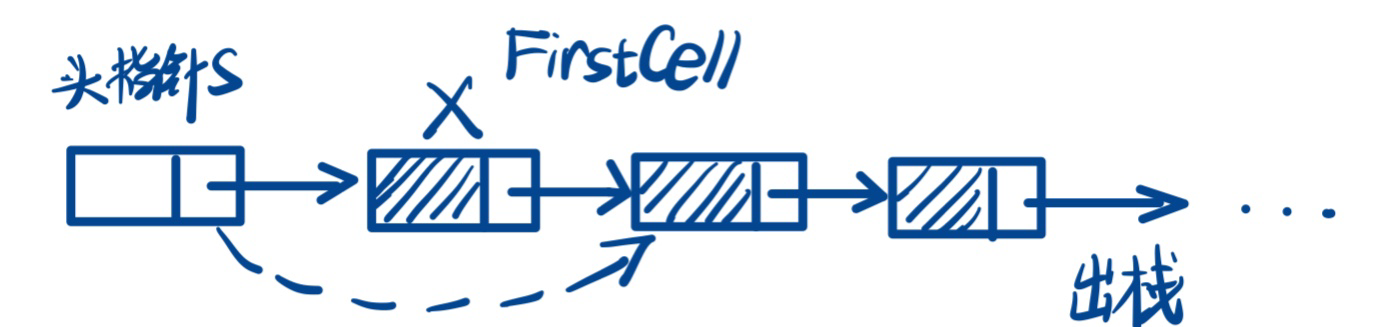 头指针S
FirstCell
X
出栈